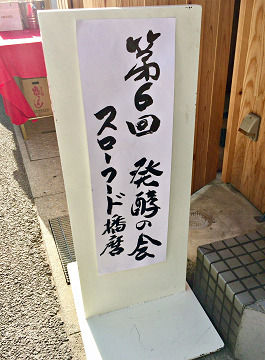 第6回 発酵の会
スローフード播磨